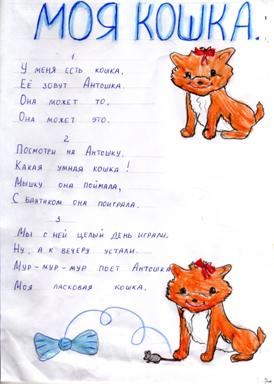 МОЯ КОШКА.
1
У МЕНЯ ЕСТЬ КОШКА,
ЕЁ ЗОВУТ АНТОШКА.
ОНА МОЖЕТ ТО,
ОНА МОЖЕТ ЭТО.
2
ПОСМОТРИ НА АНТОШКУ,
КАКАЯ УМНАЯ КОШКА!
МЫШКУ ОНА ПОЙМАЛА,
С БАНТИКОМ ОНА ПОИГРАЛА.
3
МЫ С НЕЙ ЦЕЛЫЙ ДЕНЬ ИГРАЛИ,
НУ, А К ВЕЧЕРУ УСТАЛИ.
МУР-МУР-МУР ПОЕТ АНТОШКА
МОЯ ЛАСКОВАЯ КОШКА.